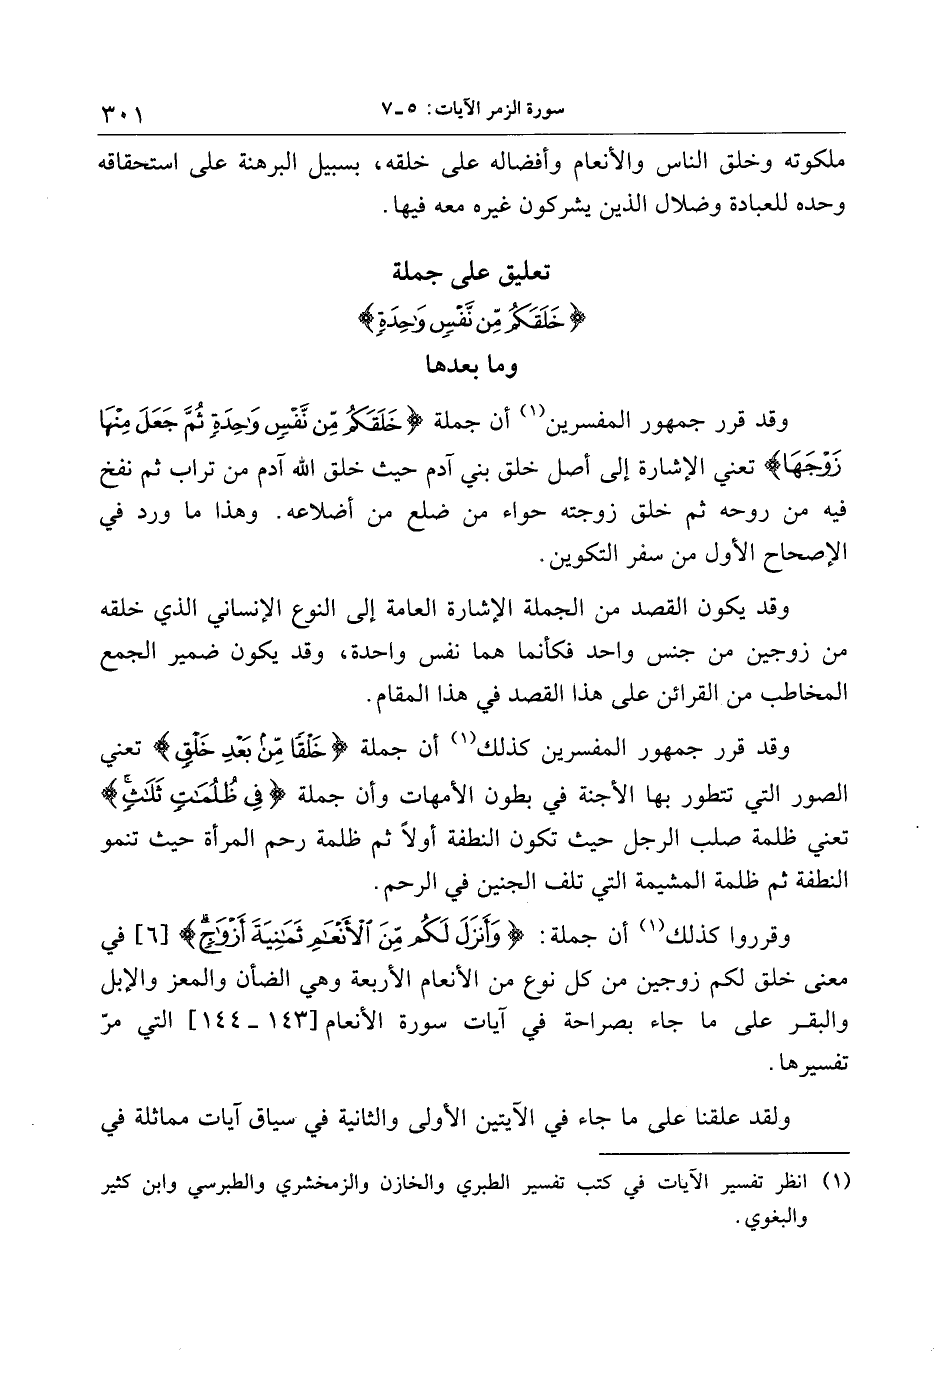 سورة الزمر الآيات: ٥ ـ ٧ ٣٠١
ملكوته وخلق الناس والأنعام وأفضاله على خلقه، بسبيل البرهنة على استحقاقه
وحده للعبادة وضلال الذين يشركون غيره معه فيها.
تعليق على جملة
﴿خَلَقَكُم مِّن نَّفْسٍ وَٰحِدَةٍ﴾
وما بعدها
وقد قرر جمهور المفسرين(١) أن جملة ﴿خَلَقَكُم مِّن نَّفْسٍ وَٰحِدَةٍ ثُمَّ جَعَلَ مِنْهَا
زَوْجَهَا﴾ تعني الإشارة إلى أصل خلق بني آدم حيث خلق الله آدم من تراب ثم نفخ
فيه من روحه ثم خلق زوجته حواء من ضلع من أضلاعه. وهذا ما ورد في
الإصحاح الأول من سفر التكوين.
وقد يكون القصد من الجملة الإشارة العامة إلى النوع الإنساني الذي خلقه
من زوجين من جنس واحد فكأنما هما نفس واحدة، وقد يكون ضمير الجمع
المخاطب من القرائن على هذا القصد في هذا المقام.
وقد قرر جمهور المفسرين كذلك(١) أن جملة ﴿خَلْقًا مِّنۢ بَعْدِ خَلْقٍ﴾ تعني
الصور التي تتطور بها الأجنة في بطون الأمهات وأن جملة ﴿فِى ظُلُمَٰتٍ ثَلَٰثٍۚ﴾
تعني ظلمة صلب الرجل حيث تكون النطفة أولاً ثم ظلمة رحم المرأة حيث تنمو
النطفة ثم ظلمة المشيمة التي تلف الجنين في الرحم.
وقرروا كذلك(١) أن جملة: ﴿وَأَنزَلَ لَكُم مِّنَ ٱلْأَنْعَٰمِ ثَمَٰنِيَةَ أَزْوَٰجٍۚ﴾ [٦] في
معنى خلق لكم زوجين من كل نوع من الأنعام الأربعة وهي الضأن والمعز والإبل
والبقر على ما جاء بصراحة في آيات سورة الأنعام [١٤٣ ـ ١٤٤] التي مرّ
تفسيرها.
ولقد علقنا على ما جاء في الآيتين الأولى والثانية في سياق آيات مماثلة في
(١) انظر تفسير الآيات في كتب تفسير الطبري والخازن والزمخشري والطبرسي وابن كثير
والبغوي.